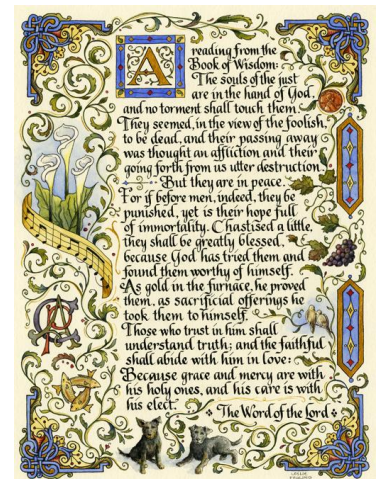 A reading from the
Book of Wisdom:
The souls of the just
are in the hand of God,
and no torment shall touch them.
They seemed, in the view of the foolish,
to be dead, and their passing away
was thought an affliction and their
going forth from us utter destruction.
But they are in peace.
For if before men, indeed, they be
punished, yet is their hope full
of immortality. Chastised a little,
they shall be greatly blessed,
because God has tried them and
found them worthy of himself.
As gold in the furnace, he proved
them, as sacrificial offerings he
took them to himself.
Those who trust in him shall
understand truth; and the faithful
shall abide with him in love:
Because grace and mercy are with
his holy ones, and his care is with
his elect.
The Word of the Lord